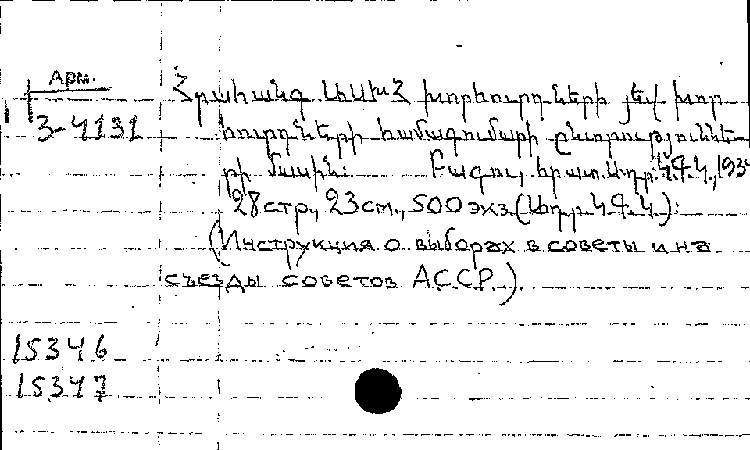 Арм.
3-4131
Հրահանգ ԱՍԽՀ խորհուրդների յեվ խոր
հուրդների համագումարի ընտրություննե-
րի մասին: Բագու, հրատ. Ադր. Կ.Գ.Կ., 193
28 стр., 23 см., 500 экз. (Ադր. Կ.Գ.Կ.):
(Инструкция о выборах в советы и на
съезды советов АССР.).
15346
15347